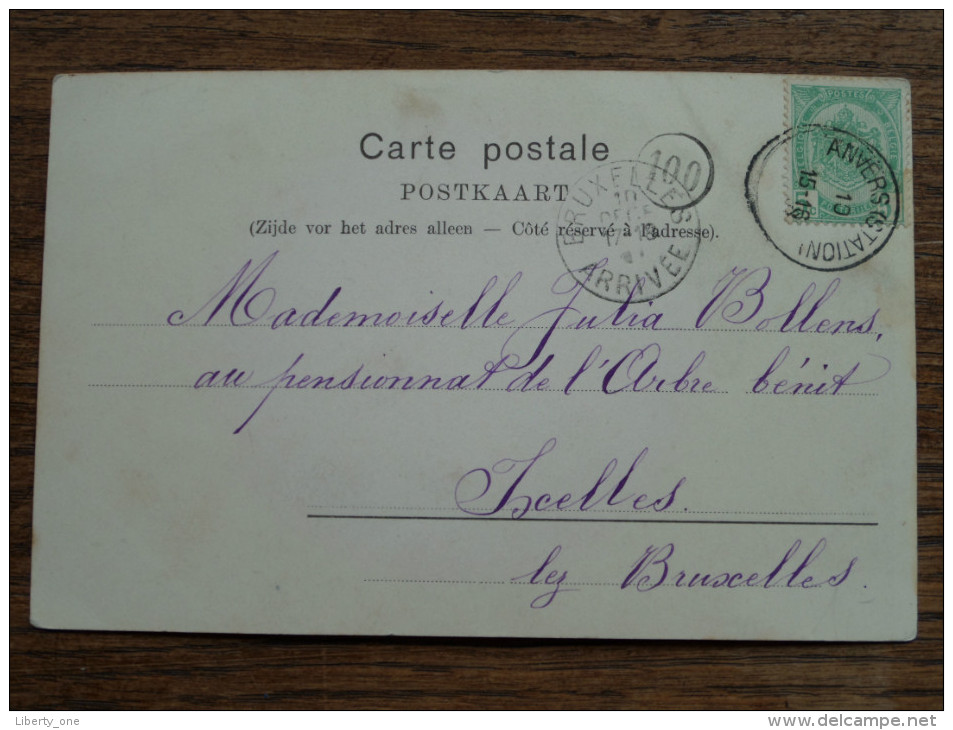 Carte postale
POSTKAART
(Zijde vor het adres alleen — Côté réservé à l'adresse).
100
BRUXELLES
10
DECE
17-18
ARRIVÉE
POSTES
ANVERS (STATION)
19
15-16
Mademoiselle Julia Bollens,
au pensionnat de l'Arbre bénit
Ixelles.
lez Bruxelles.
Liberty_one
www.delcampe.net